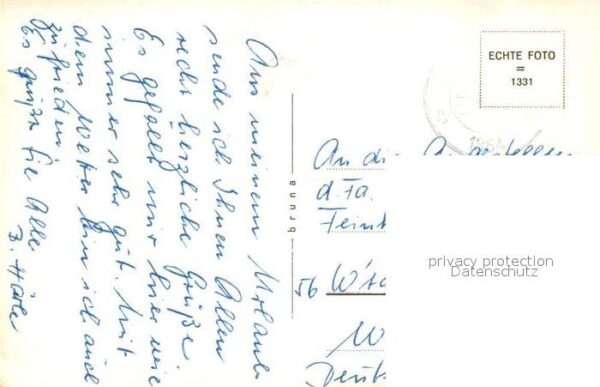 Aus meinem Urlaub
sende ich Ihnen Allen
recht herzliche Grüße.
Es gefällt mir hier wie
immer sehr gut. Mit
dem Wetter bin ich auch
zufrieden.
Es grüßt Sie Alle
bruna
ECHTE FOTO
=
1331
An die Angestellten
d. Fa.
Feink
56 W'
W
Deuts
privacy protection
Datenschutz